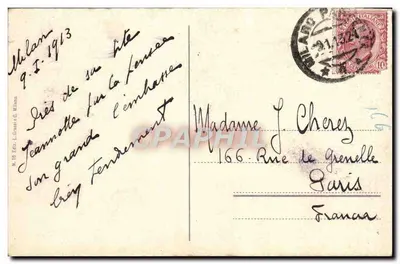 Milan
9.I.1913
Près de sa tête
Jeannette par la pensée
son grand l'embrasse
bien tendrement
Madame J Cherez
166 Rue de Grenelle
Paris
Francia
MILANO
9.1.13.21
10
166
CPAPHIL